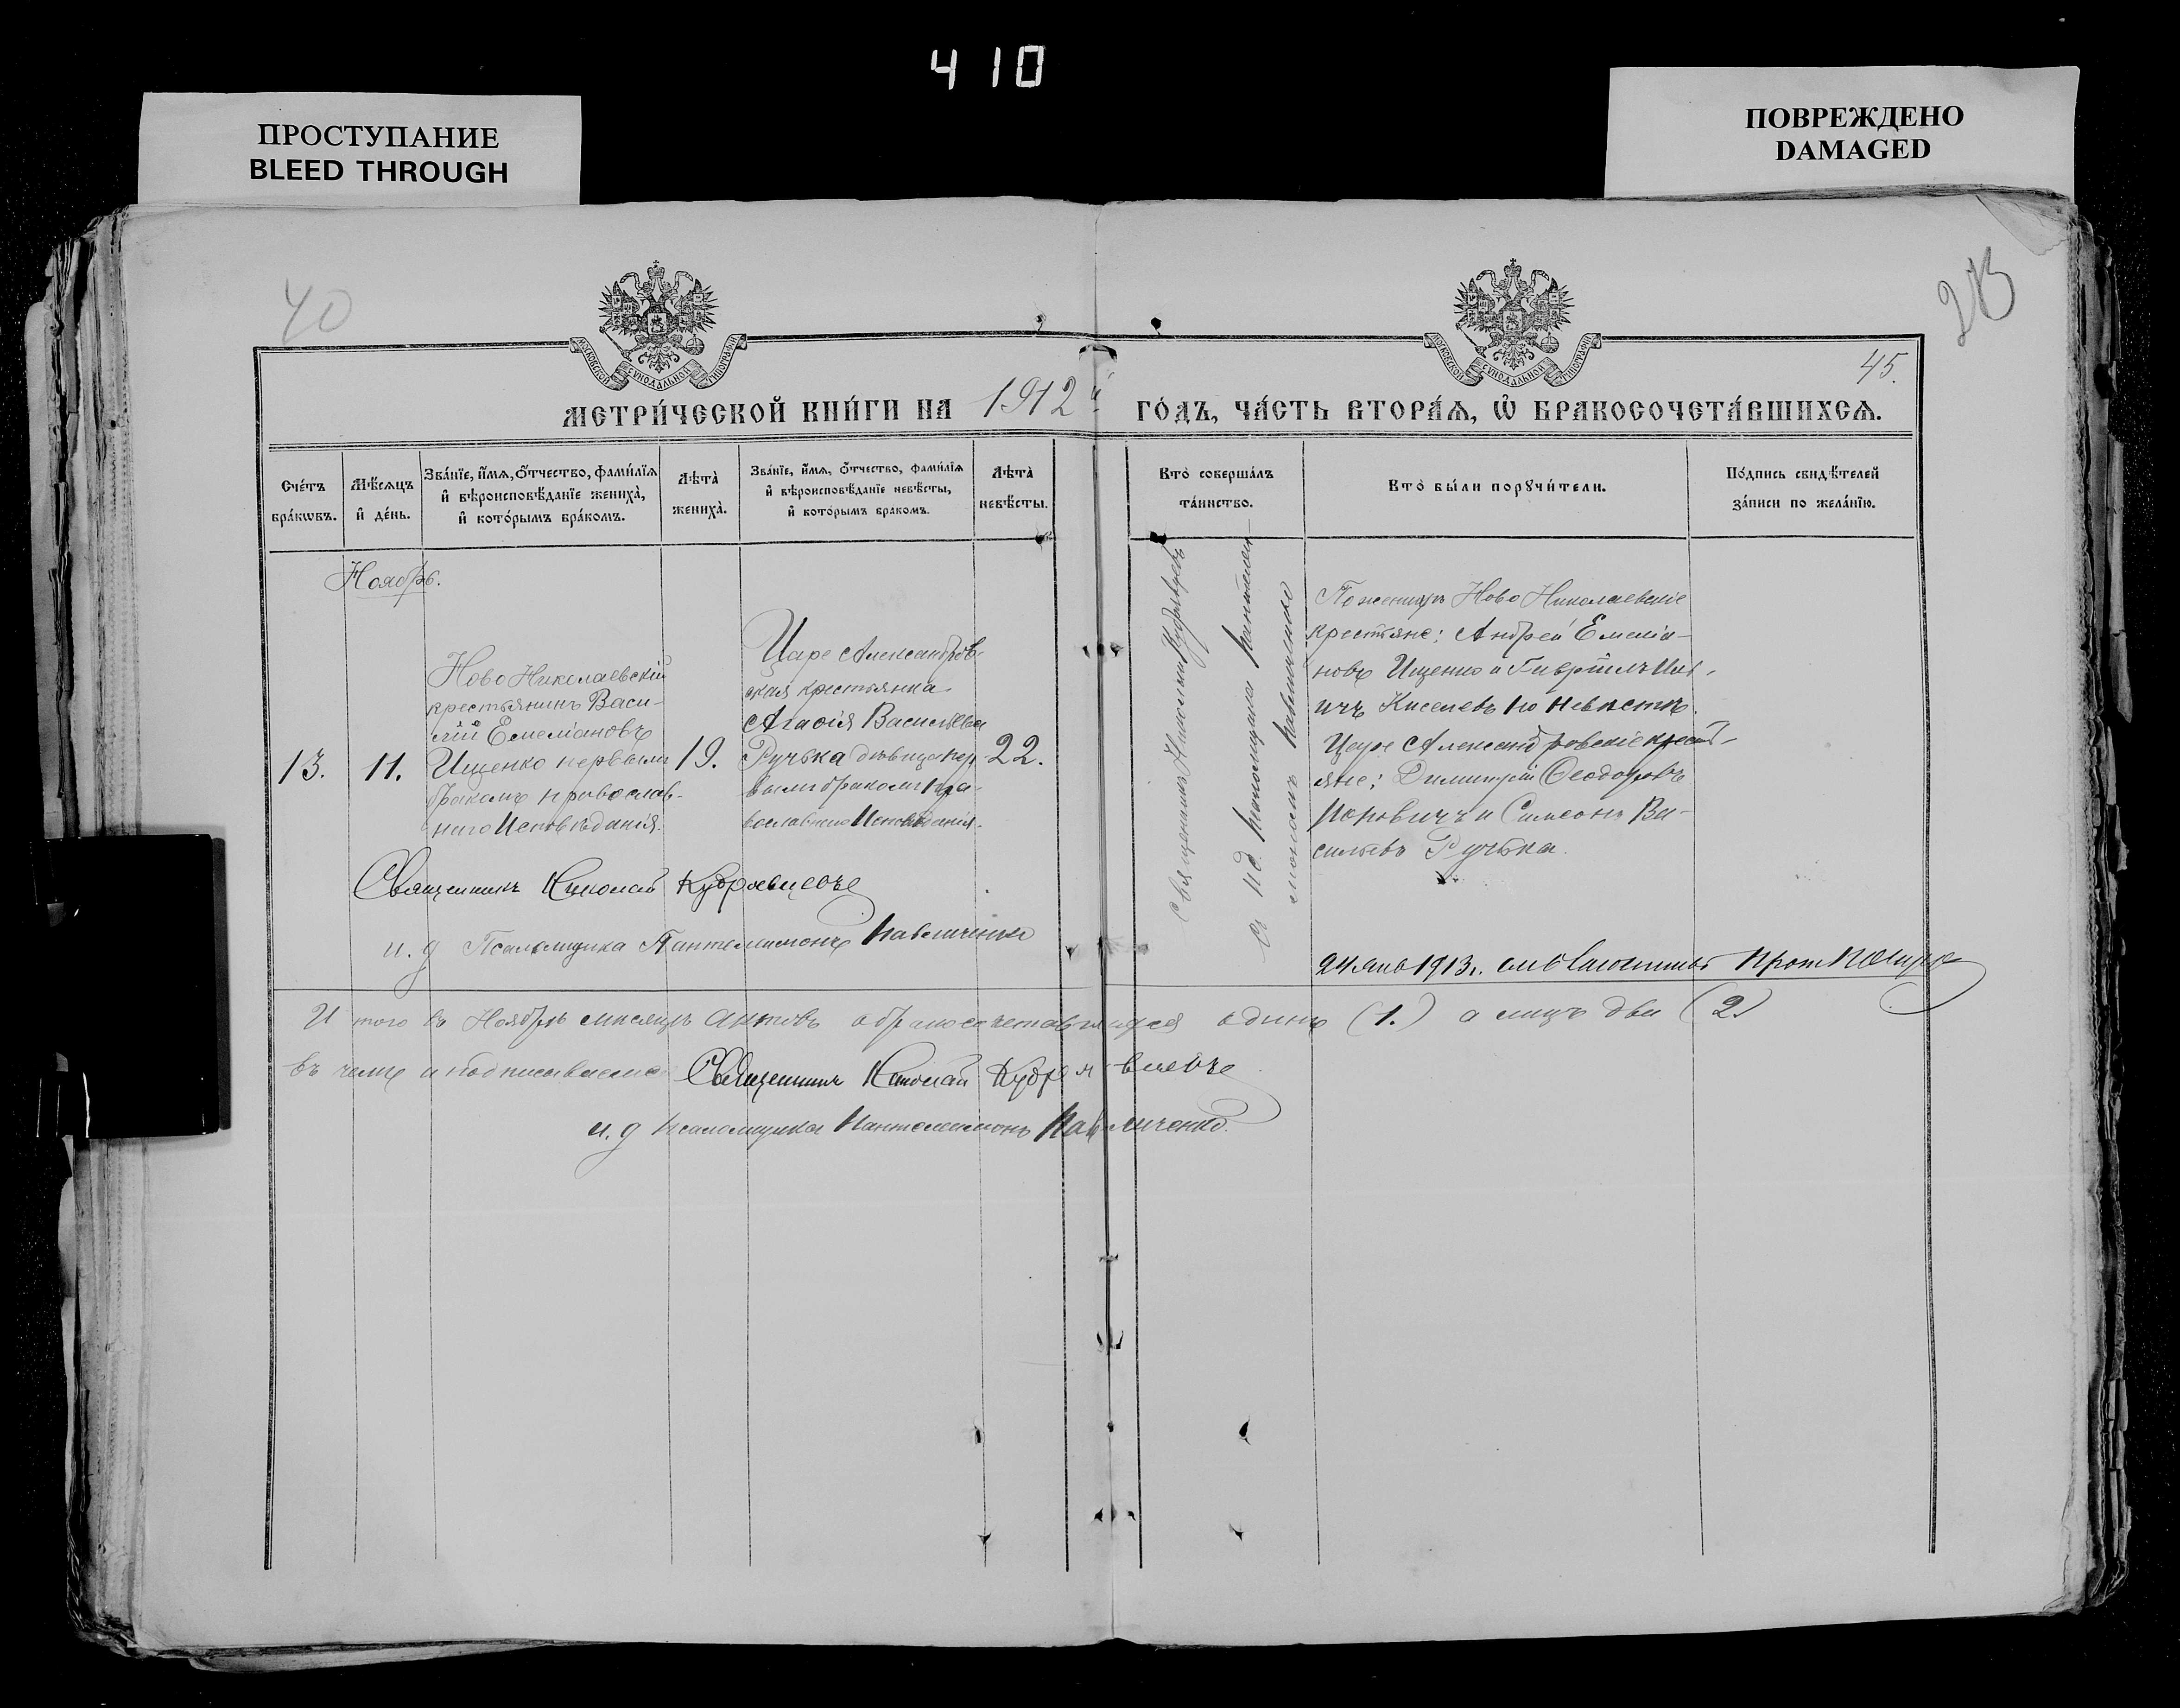 410
ПРОСТУПАНИЕ
BLEED THROUGH
ПОВРЕЖДЕНО
DAMAGED
40
213
45.
МОСКОВСКОЙ СѴНОДАЛЬНОЙ ТИПОГРАФІИ
МОСКОВСКОЙ СѴНОДАЛЬНОЙ ТИПОГРАФІИ
МЕТРИ́ЧЕСКОЙ КНИ́ГИ НА 1912й ГО́ДЪ, ЧА́СТЬ ВТОРА́Я, Ѽ БРАКОСОЧЕТА́ВШИХСЯ.
Сче́тъ
бра́кѡвъ.
Мѣ́сяцъ
и҆ де́нь.
Зва́нїе, и҆́мя, ѻ҆́тчество, фами́лїя
и҆ вѣроисповѣ́данїе жениха̀,
и҆ кото́рымъ бра́комъ.
Лѣта̀
жениха̀.
Зва́нїе, и҆́мя, ѻ҆́тчество, фами́лїя
и҆ вѣроисповѣ́данїе невѣ́сты,
и҆ кото́рымъ бракомъ.
Лѣта̀
невѣ́сты.
Кто̀ соверша́лъ
та́инство.
Кто̀ бы́ли порꙋчи́тели.
По́дпись свидѣ́телей
за́писи по жела́нїю.
Ноябрь.
13.
11.
Ново Николаевскій
крестьянинъ Васи-
лій Емеліановъ
Ищенко первымъ
бракомъ православ-
наго Исповѣданія.
19.
Царе Александров-
ская крестьянка
Агафія Васильева
Ручька дѣвица пер-
вымъ бракомъ пра-
вославнаго Исповѣданія.
22.
Священникъ Николай Кудрявцевъ
и. д. псаломщика Пантелеи-
монъ Павличенко
По женихѣ Ново Николаевскіе
крестьяне: Андрей Емелiа-
новъ Ищенко и Гавріилъ
Киселевъ по невѣстѣ
Царе Александровскіе крест-
яне: Димитрій Ѳеодоровъ
и Симеонъ Ва-
сильевъ Ручька.
Священникъ Николай Кудрявцевъ
и. д. Псаломщика Пантелеимонъ Павличенко
24 янв 1913 г.
Итого въ Ноябрѣ мѣсяцѣ актовъ о бракосочетавшихся одинъ (1.) а лицъ два (2)
въ чемъ и подписываемся Священникъ Николай Кудрявцевъ
и. д. псаломщика Пантелеимонъ Павличенко.